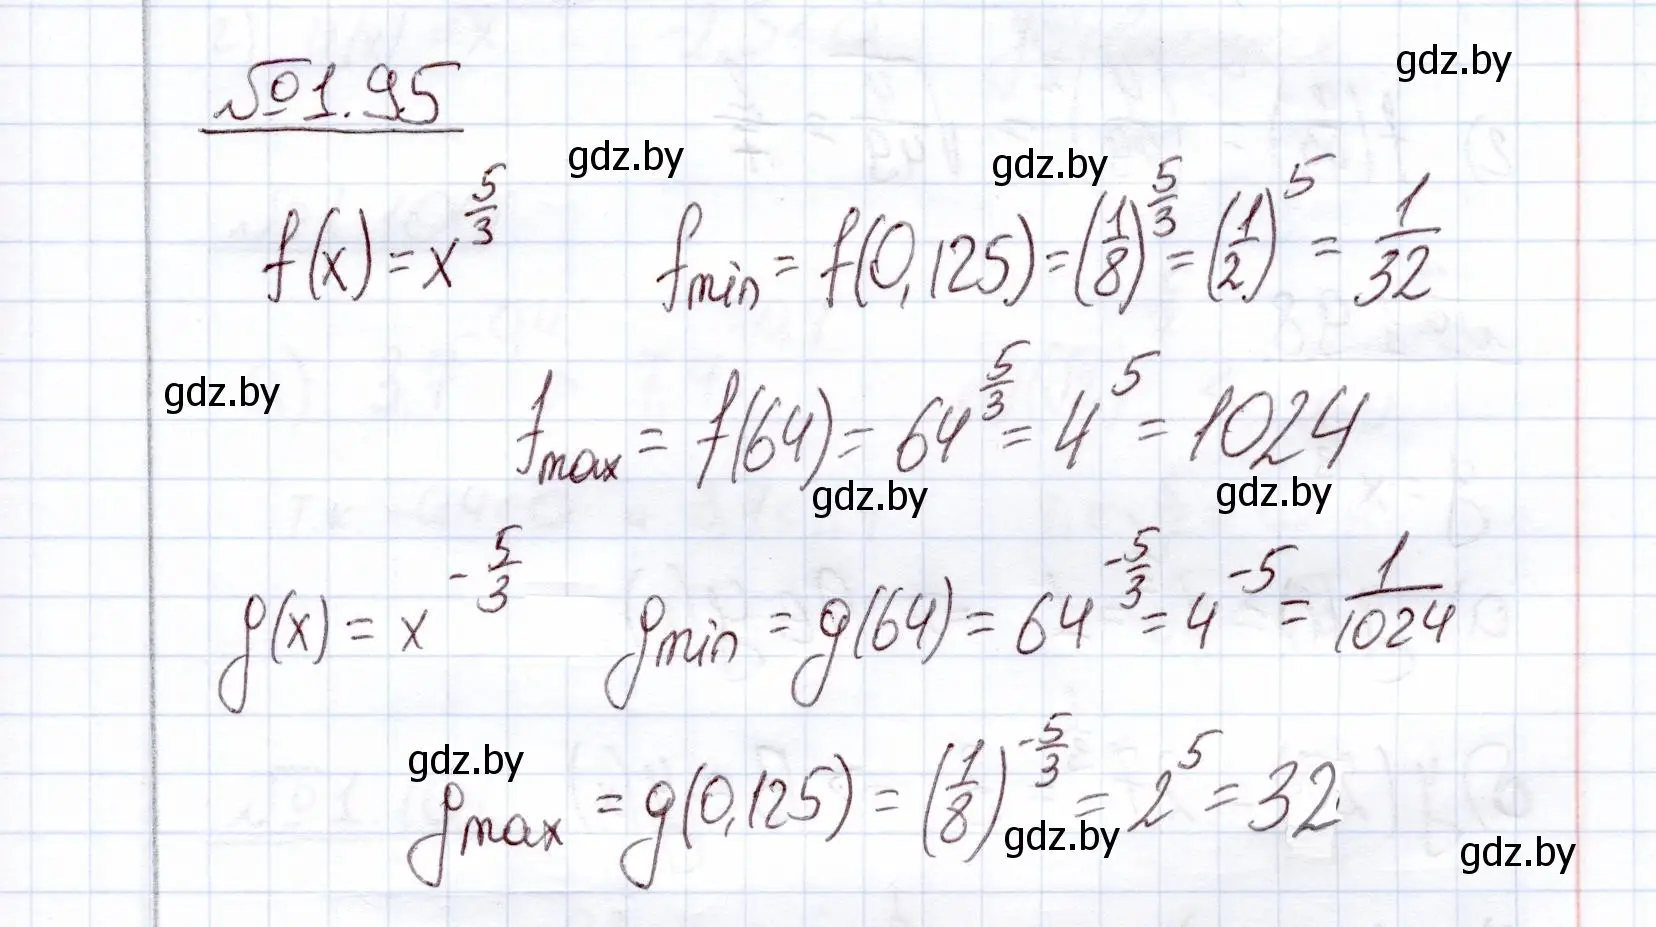 №1.95
gdz.by
gdz.by gdz.by
f(x) = x^{5/3} f_{min} = f(0,125) = (1/8)^{5/3} = (1/2)^5 = 1/32
gdz.by
f_{max} = f(64) = 64^{5/3} = 4^5 = 1024
gdz.by gdz.by
g(x) = x^{-5/3} g_{min} = g(64) = 64^{-5/3} = 4^{-5} = 1/1024
gdz.by
g_{max} = g(0,125) = (1/8)^{-5/3} = 2^5 = 32
gdz.by gdz.by